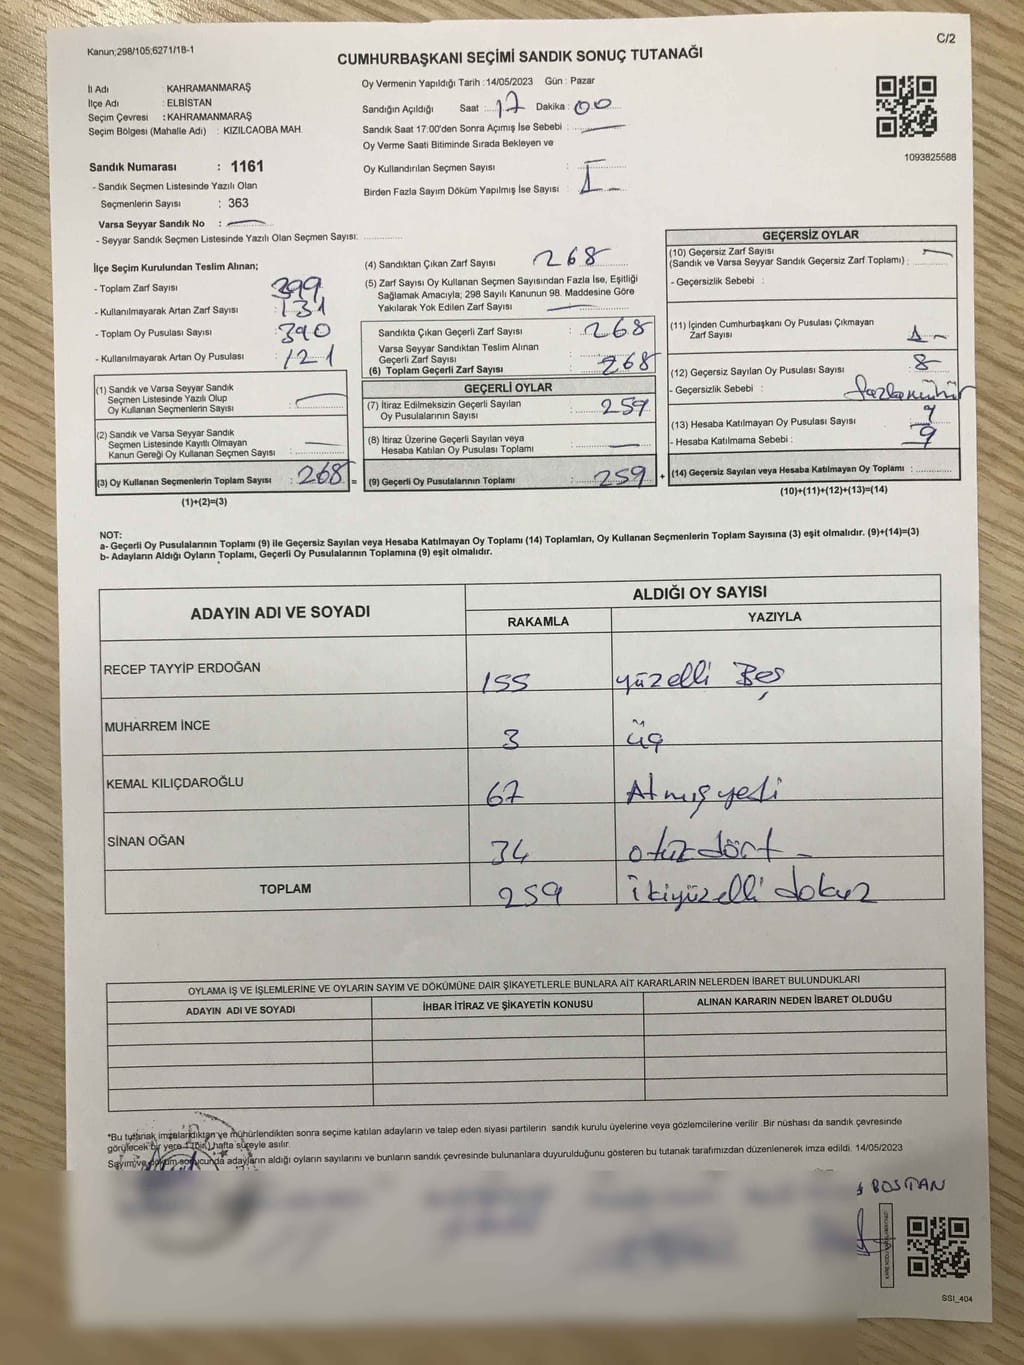 Kanun;298/105;6271/18-1
C/2
CUMHURBAŞKANI SEÇİMİ SANDIK SONUÇ TUTANAĞI
İl Adı : KAHRAMANMARAŞ
İlçe Adı : ELBİSTAN
Seçim Çevresi : KAHRAMANMARAŞ
Seçim Bölgesi (Mahalle Adı) : KIZILCAOBA MAH.
Sandık Numarası : 1161
- Sandık Seçmen Listesinde Yazılı Olan
Seçmenlerin Sayısı : 363
Varsa Seyyar Sandık No :
- Seyyar Sandık Seçmen Listesinde Yazılı Olan Seçmen Sayısı:
Oy Vermenin Yapıldığı Tarih : 14/05/2023 Gün : Pazar
Sandığın Açıldığı Saat : 17 Dakika : 00
Sandık Saat 17:00'den Sonra Açımış İse Sebebi :
Oy Verme Saati Bitiminde Sırada Bekleyen ve
Oy Kullandırılan Seçmen Sayısı :
Birden Fazla Sayım Döküm Yapılmış İse Sayısı :
1093825588
İlçe Seçim Kurulundan Teslim Alınan;
- Toplam Zarf Sayısı : 399
- Kullanılmayarak Artan Zarf Sayısı : 131
- Toplam Oy Pusulası Sayısı : 390
- Kullanılmayarak Artan Oy Pusulası : 121
(1) Sandık ve Varsa Seyyar Sandık
Seçmen Listesinde Yazılı Olup
Oy Kullanan Seçmenlerin Sayısı :
(2) Sandık ve Varsa Seyyar Sandık
Seçmen Listesinde Kayıtlı Olmayan
Kanun Gereği Oy Kullanan Seçmen Sayısı :
(3) Oy Kullanan Seçmenlerin Toplam Sayısı : 268 =
(1)+(2)=(3)
(4) Sandıktan Çıkan Zarf Sayısı : 268
(5) Zarf Sayısı Oy Kullanan Seçmen Sayısından Fazla İse, Eşitliği
Sağlamak Amacıyla; 298 Sayılı Kanunun 98. Maddesine Göre
Yakılarak Yok Edilen Zarf Sayısı :
Sandıkta Çıkan Geçerli Zarf Sayısı : 268
Varsa Seyyar Sandıktan Teslim Alınan
Geçerli Zarf Sayısı :
(6) Toplam Geçerli Zarf Sayısı : 268
GEÇERLİ OYLAR
(7) İtiraz Edilmeksizin Geçerli Sayılan
Oy Pusulalarının Sayısı : 259
(8) İtiraz Üzerine Geçerli Sayılan veya
Hesaba Katılan Oy Pusulası Toplamı :
(9) Geçerli Oy Pusulalarının Toplamı : 259 +
GEÇERSİZ OYLAR
(10) Geçersiz Zarf Sayısı
(Sandık ve Varsa Seyyar Sandık Geçersiz Zarf Toplamı) :
- Geçersizlik Sebebi :
(11) İçinden Cumhurbaşkanı Oy Pusulası Çıkmayan
Zarf Sayısı : 1
(12) Geçersiz Sayılan Oy Pusulası Sayısı : 8
- Geçersizlik Sebebi : fazla mühür
(13) Hesaba Katılmayan Oy Pusulası Sayısı :
- Hesaba Katılmama Sebebi : 9
(14) Geçersiz Sayılan veya Hesaba Katılmayan Oy Toplamı :
(10)+(11)+(12)+(13)=(14)
NOT:
a- Geçerli Oy Pusulalarının Toplamı (9) ile Geçersiz Sayılan veya Hesaba Katılmayan Oy Toplamı (14) Toplamları, Oy Kullanan Seçmenlerin Toplam Sayısına (3) eşit olmalıdır. (9)+(14)=(3)
b- Adayların Aldığı Oyların Toplamı, Geçerli Oy Pusulalarının Toplamına (9) eşit olmalıdır.
ADAYIN ADI VE SOYADI
ALDIĞI OY SAYISI
RAKAMLA YAZIYLA
RECEP TAYYİP ERDOĞAN 155 yüzelli Beş
MUHARREM İNCE 3 üç
KEMAL KILIÇDAROĞLU 67 Atmış yedi
SİNAN OĞAN 34 otuzdört
TOPLAM 259 ikiyüzelli dokuz
OYLAMA İŞ VE İŞLEMLERİNE VE OYLARIN SAYIM VE DÖKÜMÜNE DAİR ŞİKAYETLERLE BUNLARA AİT KARARLARIN NELERDEN İBARET BULUNDUKLARI
ADAYIN ADI VE SOYADI İHBAR İTİRAZ VE ŞİKAYETİN KONUSU ALINAN KARARIN NEDEN İBARET OLDUĞU
*Bu tutanak imzalandıktan ve mühürlendikten sonra seçime katılan adayların ve talep eden siyasi partilerin sandık kurulu üyelerine veya gözlemcilerine verilir .Bir nüshası da sandık çevresinde
görülecek bir yere 1 (bir) hafta süreyle asılır.
Sayım ve döküm sonucunda adayların aldığı oyların sayılarını ve bunların sandık çevresinde bulunanlara duyurulduğunu gösteren bu tutanak tarafımızdan düzenlenerek imza edildi. 14/05/2023
BOSTAN
SSI_404